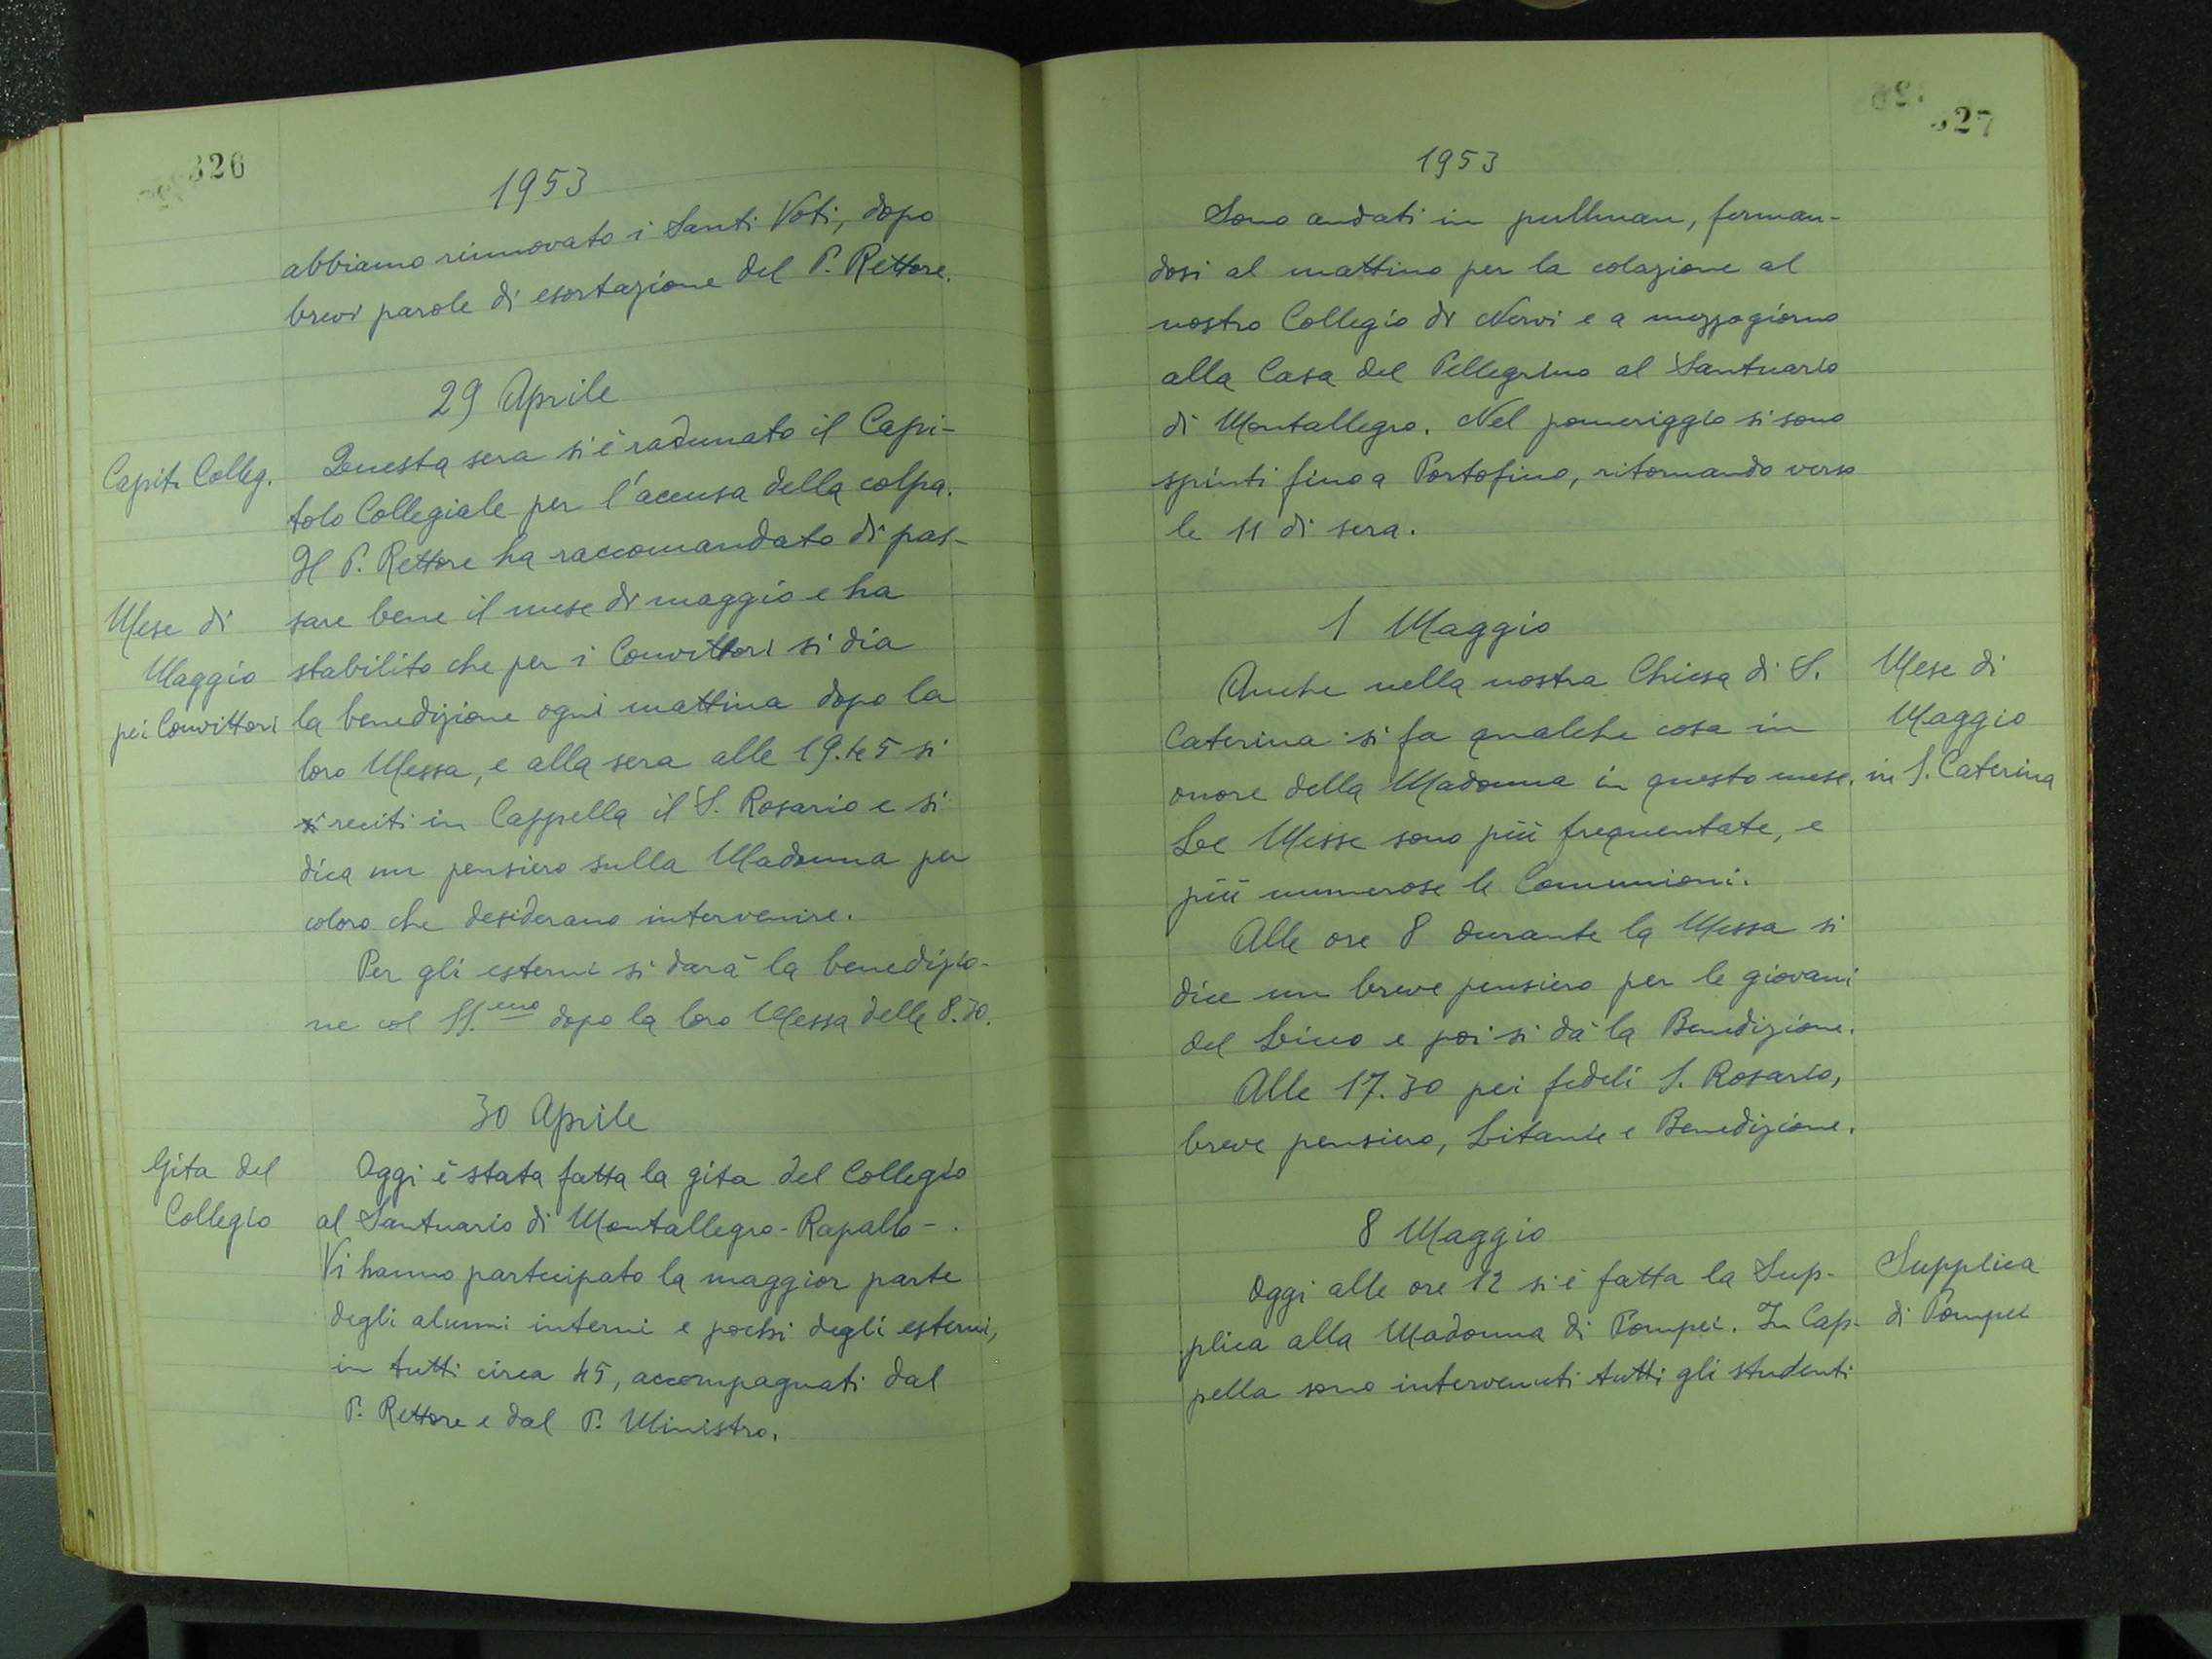 326
1953
abbiamo rinnovato i Santi Voti, dopo
brevi parole di esortazione del P. Rettore.
29 Aprile
Capit. Colleg.
Questa sera si è radunato il Capi-
tolo Collegiale per l'accusa della colpa.
Il P. Rettore ha raccomandato di pas-
Mese di
Maggio
pei Convittori
sare bene il mese di maggio e ha
stabilito che per i Convittori si dia
la benedizione ogni mattina dopo la
loro Messa, e alla sera alle 19.45 si
reciti in Cappella il S. Rosario e si
dica un pensiero sulla Madonna per
coloro che desiderano intervenire.
Per gli esterni si darà la benedizio-
ne col SS.mo dopo la loro Messa delle 8.30.
30 Aprile
Gita del
Collegio
Oggi è stata fatta la gita del Collegio
al Santuario di Montallegro - Rapallo - .
Vi hanno partecipato la maggior parte
degli alunni interni e pochi degli esterni,
in tutti circa 45, accompagnati dal
P. Rettore e dal P. Ministro.
327
1953
Sono andati in pullman, ferman-
dosi al mattino per la colazione al
nostro Collegio di Nervi e a mezzogiorno
alla Casa del Pellegrino al Santuario
di Montallegro. Nel pomeriggio si sono
spinti fino a Portofino, ritornando verso
le 11 di sera.
1 Maggio
Anche nella nostra Chiesa di S.
Caterina si fa qualche cosa in
onore della Madonna in questo mese.
Le Messe sono più frequentate, e
più numerose le Comunioni.
Mese di
Maggio
in S. Caterina
Alle ore 8 durante la Messa si
dice un breve pensiero per le giovani
del Liceo e poi si dà la Benedizione.
Alle 17.30 pei fedeli S. Rosario,
breve pensiero, Litanie e Benedizione.
8 Maggio
Oggi alle ore 12 si è fatta la Sup-
plica alla Madonna di Pompei. In Cap-
pella sono intervenuti tutti gli studenti
Supplica
di Pompei